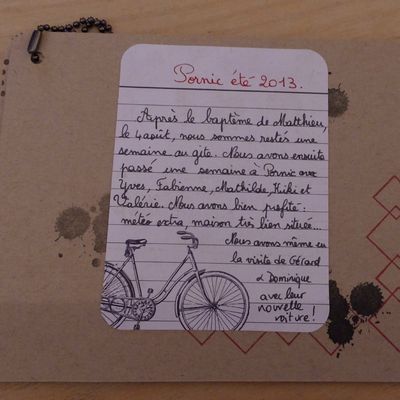 Pornic été 2013.
Après le baptême de Matthieu,
le 4 août, nous sommes restés une
semaine au gîte. Nous avons ensuite
passé une semaine à Pornic avec
Yves, Fabienne, Mathilde, Kiki et
Valérie. Nous avons bien profité :
météo extra, maison très bien située...
Nous avons même eu
la visite de Gérard
& Dominique
avec leur
nouvelle
voiture !